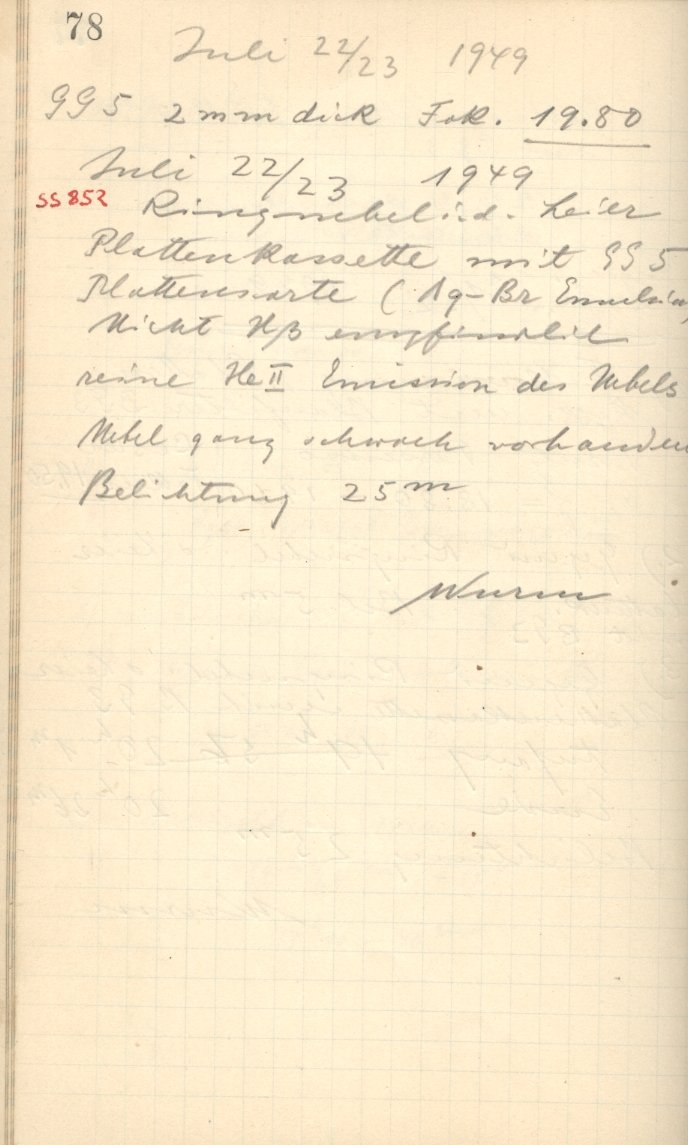 78
Juli 22/23 1949
GG 5 2 mm dick Fok. 19.80
Juli 22/23 1949
SS 852 Ringnebel i. d. Leier
Plattenkassette mit GG 5
Plattensorte (Ag-Br Emulsion)
Nicht Hβ empfindlich
reine He II Emission des Nebels
Nebel ganz schwach vorhanden
Belichtung 25 m
Wurm